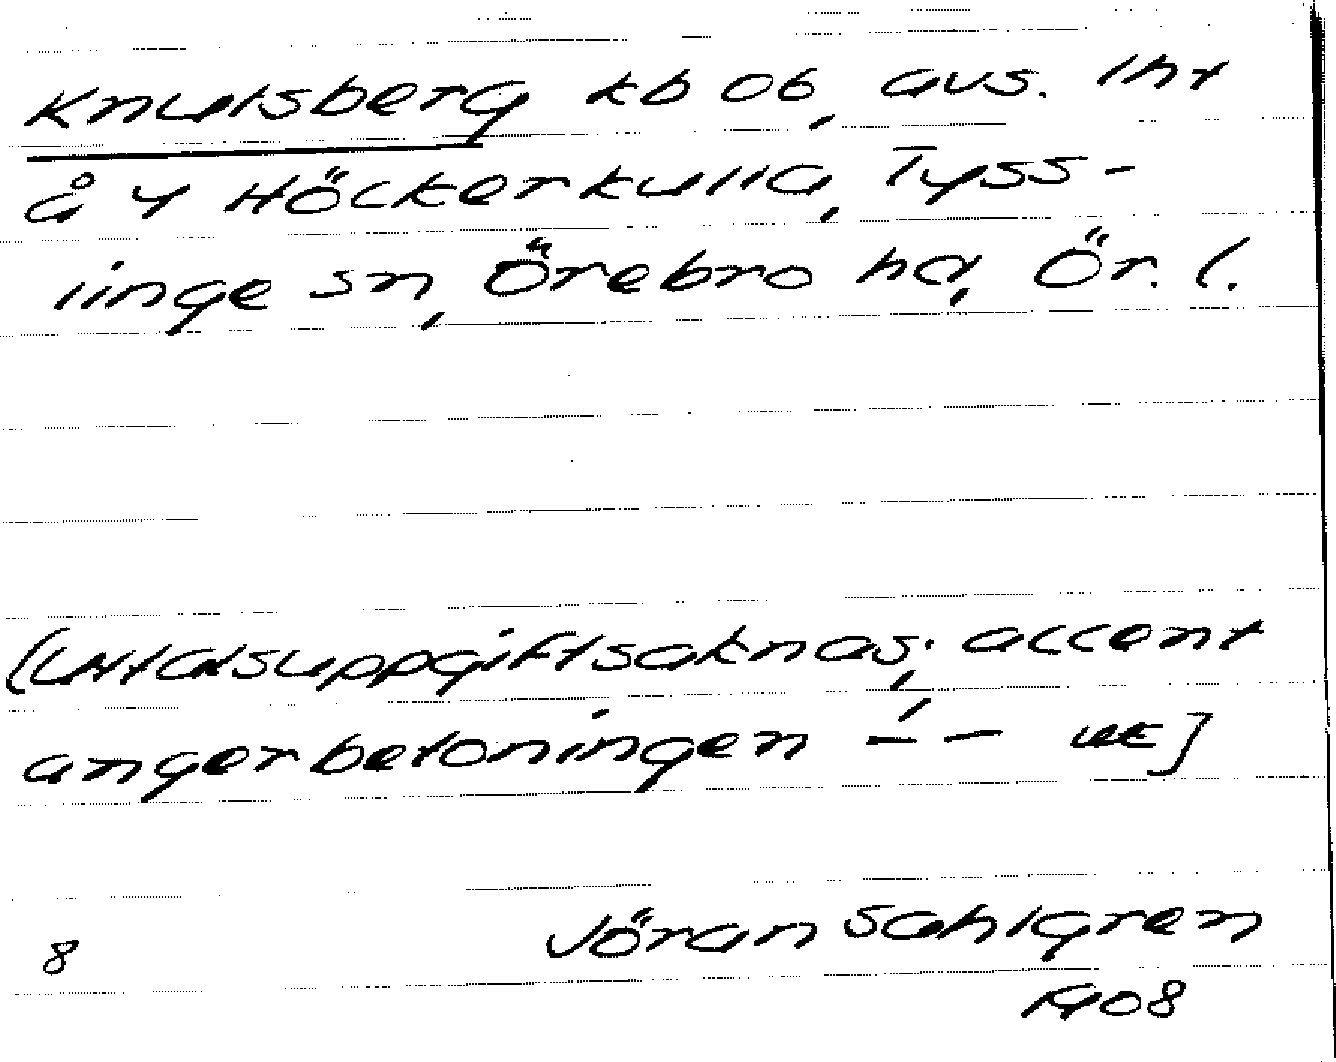 Knutsberg kb 06, avs. lht
å 4 Höckerkulla, Tyss-
linge sn, Örebro hd, Ör. l.
[Uttalsuppgift saknas; accent
anger betoningen –́ –
8 Jöran Sahlgren
1908